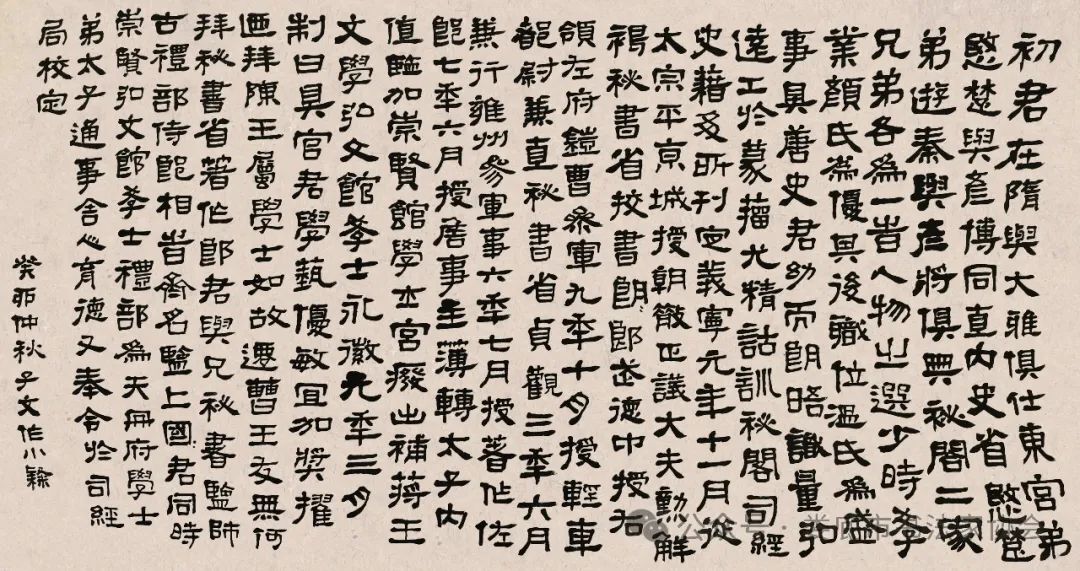 初君在隋與大雅俱仕東宮弟
愍楚與彥博同直內史省愍楚
弟遊秦與彥將俱典秘閣二家
兄弟各為一時人物之選少時學
業顏氏為優其後職位溫氏為盛
事具唐史君幼而朗晤識量弘
遠工於篆籀尤精詁訓秘閣司經
史籍多所刊定義寧元年十一月從
太宗平京城授朝散正議大夫勳解
褐秘書省挍書朗郎武德中授右
領左府鎧曹叅軍九年十月授輕車
都尉兼直秘書省貞觀三年六月
兼行雍州叅軍事六年七月授著作佐
郎七年六月授詹事主薄轉太子內
值監加崇賢館學士宮廢出補蔣王
文學弘文館學士永徽元年三月
制曰具官君學藝優敏宜加獎擢
迺拜陳王屬學士如故遷曹王友無何
拜秘書省著作郎君與兄秘書監師
古禮部侍郎相時齊名監上國君同時
崇賢弘文館學士禮部為天冊府學士
弟太子通事舍人育德又奉令於司經
局校定
癸卯仲秋子文作小隸
公众号 · 娄底市书法家协会